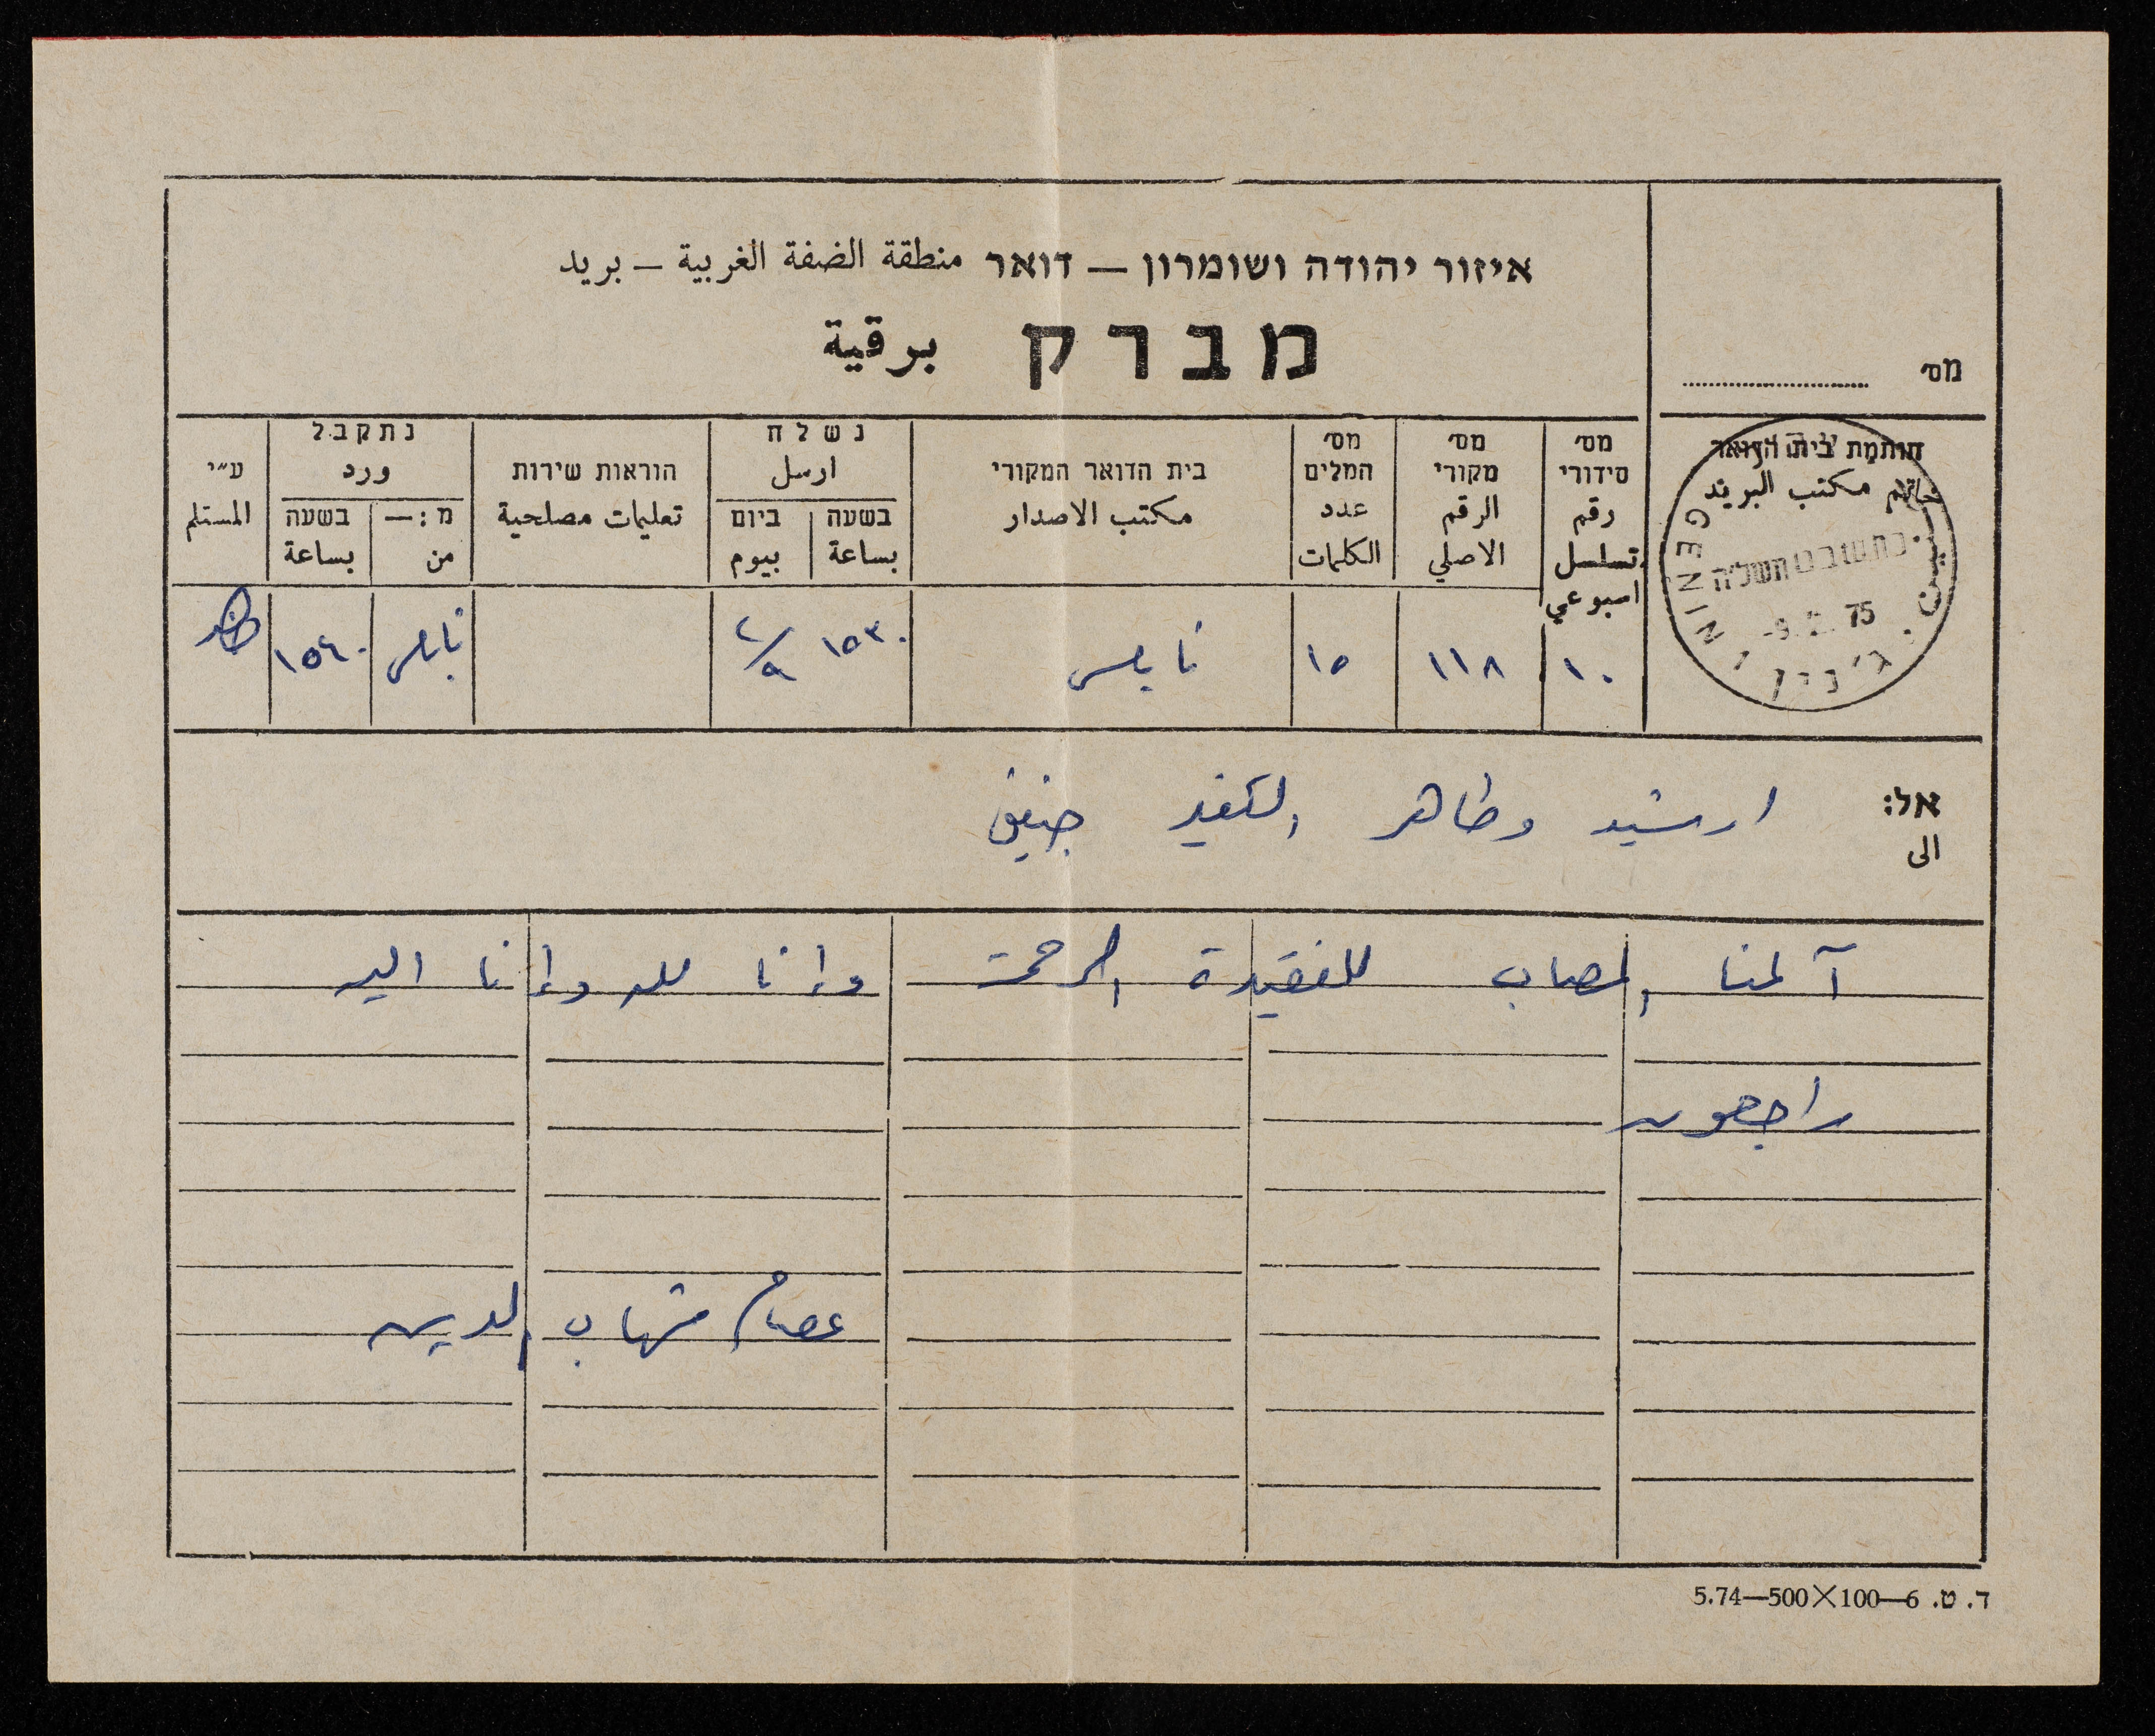 איזור יהודה ושומרון — דואר منطقة الضفة الغربية — بريد
מברק برقية
מס׳
חותמת בית הדואר
خاتم مكتب البريد
GENIN
ג'נין
-9. 2. 75
מס׳ סידורי
رقم تسلسل اسبوعي
מס׳ מקורי
الرقم الاصلي
מס׳ המלים
عدد الكلمات
בית הדואר המקורי
مكتب الاصدار
נשלח
ارسل
בשעה
بساعة
ביום
بيوم
הוראות שירות
تعليمات مصلحية
נתקבל
ورد
מ:—
من
בשעה
بساعة
ע״י
المستلم
١٠ ١١٨ ١٥ نابلس ١٥٣٠ ٩/٢ نابلس ١٥٤٠
אל:
الى
ارشيد وطاهر الكفير جنين
آلمنا المصاب للفقيدة الرحمة وإنا لله وإنا اليه
راجعون
عصام شهاب الدين
ד. ט. 6—100×500—5.74